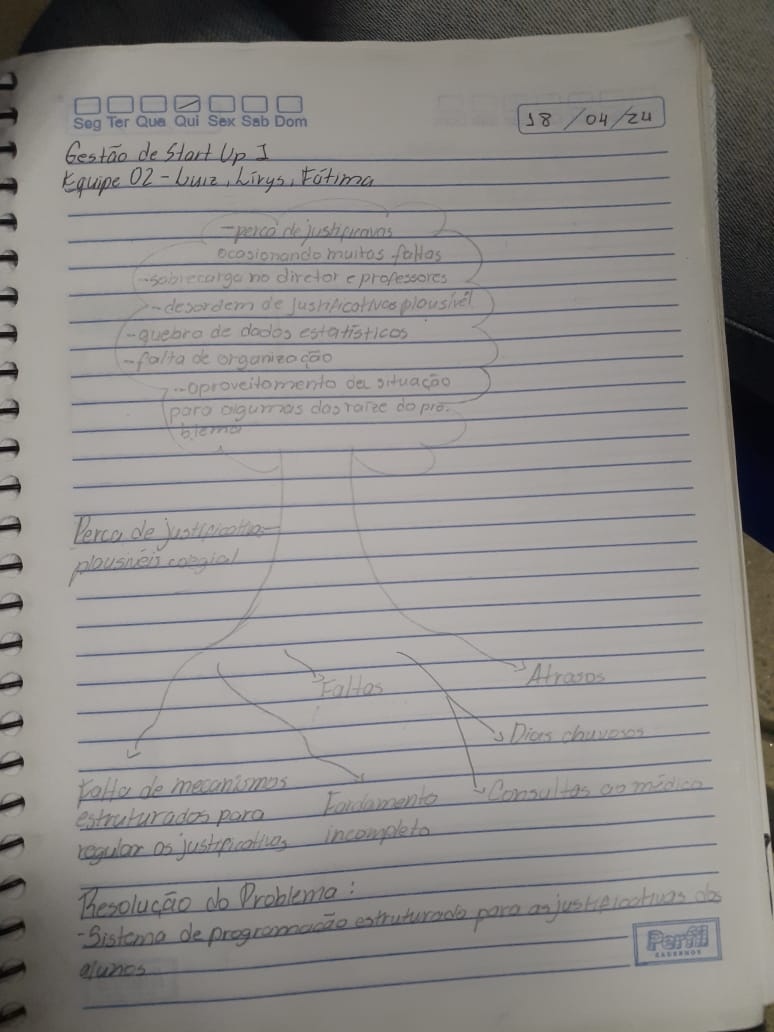 Seg Ter Qua Qui Sex Sab Dom
18/04/24
Gestão de Start Up I
Equipe 02 - Luiz, Lirys, Fátima
-perca de justificavas
ocasionando muitas faltas
-sobrecarga no diretor e professores
-desordem de justificativas plausível
-quebra de dados estatísticos
-falta de organização
-aproveitamento da situação
para algumas das raize do pro-
blema
Perca de justificativas
plausivéis colegial
Faltas
Atrasos
Dias chuvosos
Consultas ao médico
Falta de mecanismos
estruturados para
regular as justificativas
Fardamento
incompleto
Resolução do Problema:
-Sistema de programação estruturado para as justificativas dos
alunos
Perfil
CADERNOS